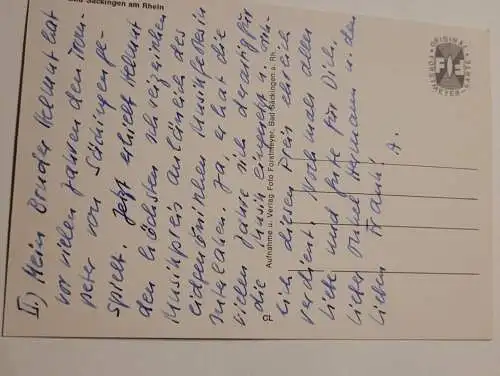 Bad Säckingen am Rhein
II.) Mein Bruder Helmut hat
vor vielen Jahren den Trom-
peter von Säckingen ge-
spielt. Jetzt erhielt Helmut
den höchsten schweizerischen
Musikpreis anläßlich des
eidgenössischen Musikfestes in
Interlaken. Ja, er hat die
vielen Jahre sich derartig für
die Musik eingesetzt u.
diesen Preis ehrlich
verdient. Nochmals alles
Liebe und Gute für Dich,
lieber Onkel Hermann u. den
lieben Frank!
A.
Aufnahme u. Verlag Foto Forstmeyer, Bad Säckingen a. Rh.
ORIGINAL
FORST-
MEYER-
KARTE